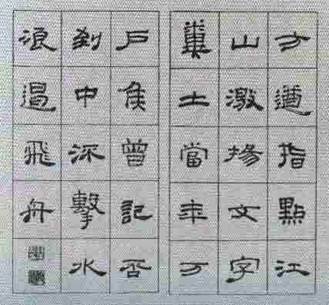 方遒指點江
山激揚文字
糞土當年万
戶侯曾記否
到中流擊水
浪遏飛舟